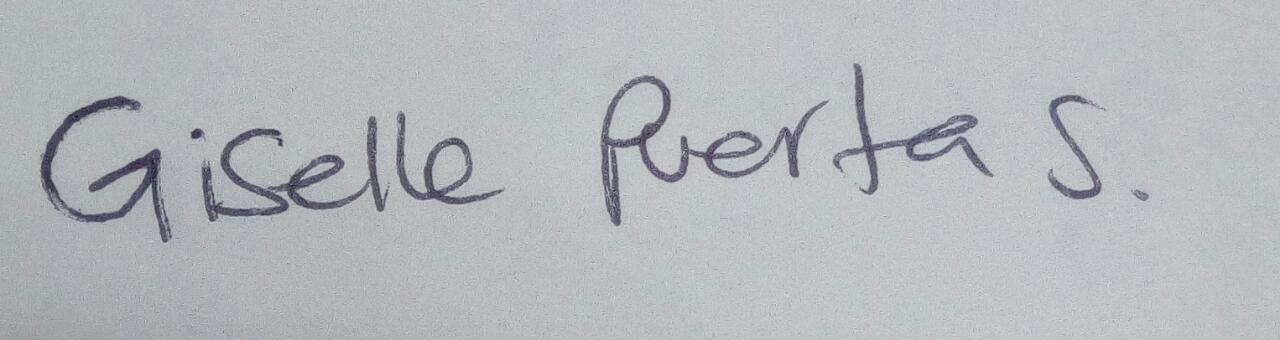 Giselle Puerta S.